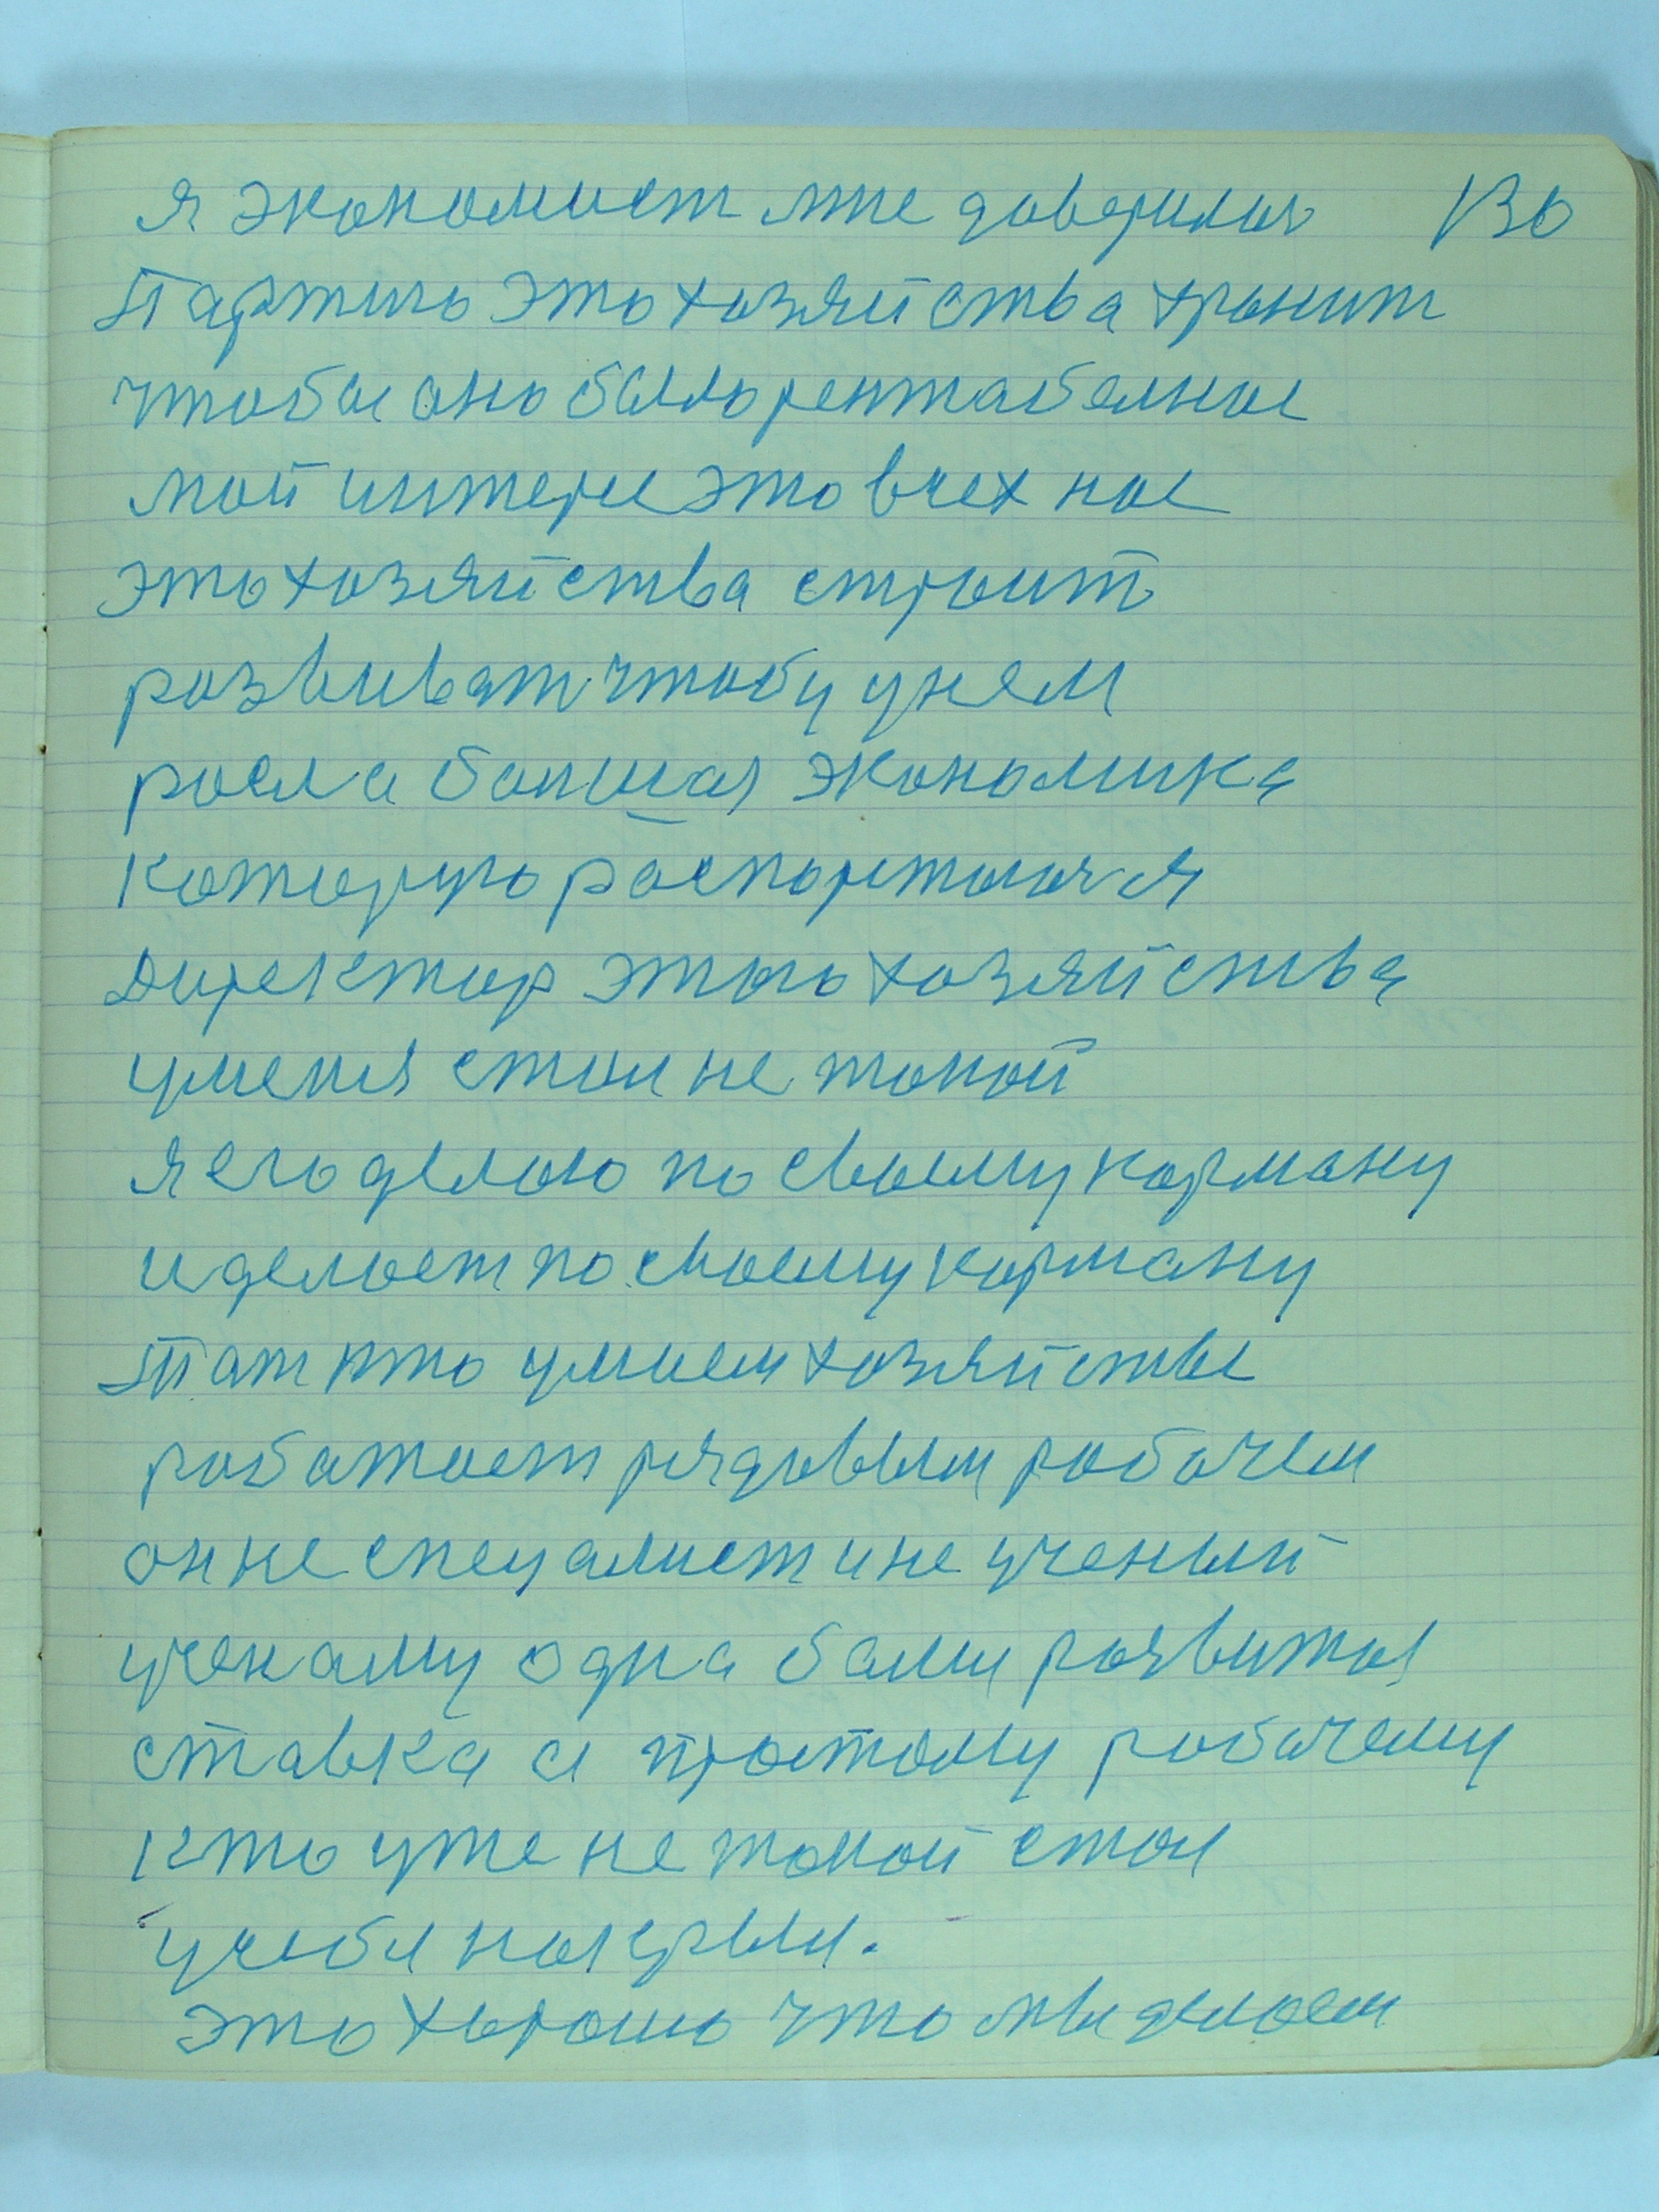 я экономист мне доверилая 130
Партию это хозяйства хранит
чтобы оно было рентабелное
мой интерес это всех нас
это хозяйства строит
развиват чтобы у нем
росла болшая экономика
которую распоретился
Директор этого хозяйства
у меня стол не токой
я его делаю по своему карману
и делает по своему карману
Тат кто у моем хозяйстве
работает рядовым рабочем
он не специалист и не ученый
ученаму одна
ставка а простому рабочему
кто уже не токой стол
учебя накрыл.
это хорошо что мы делаем